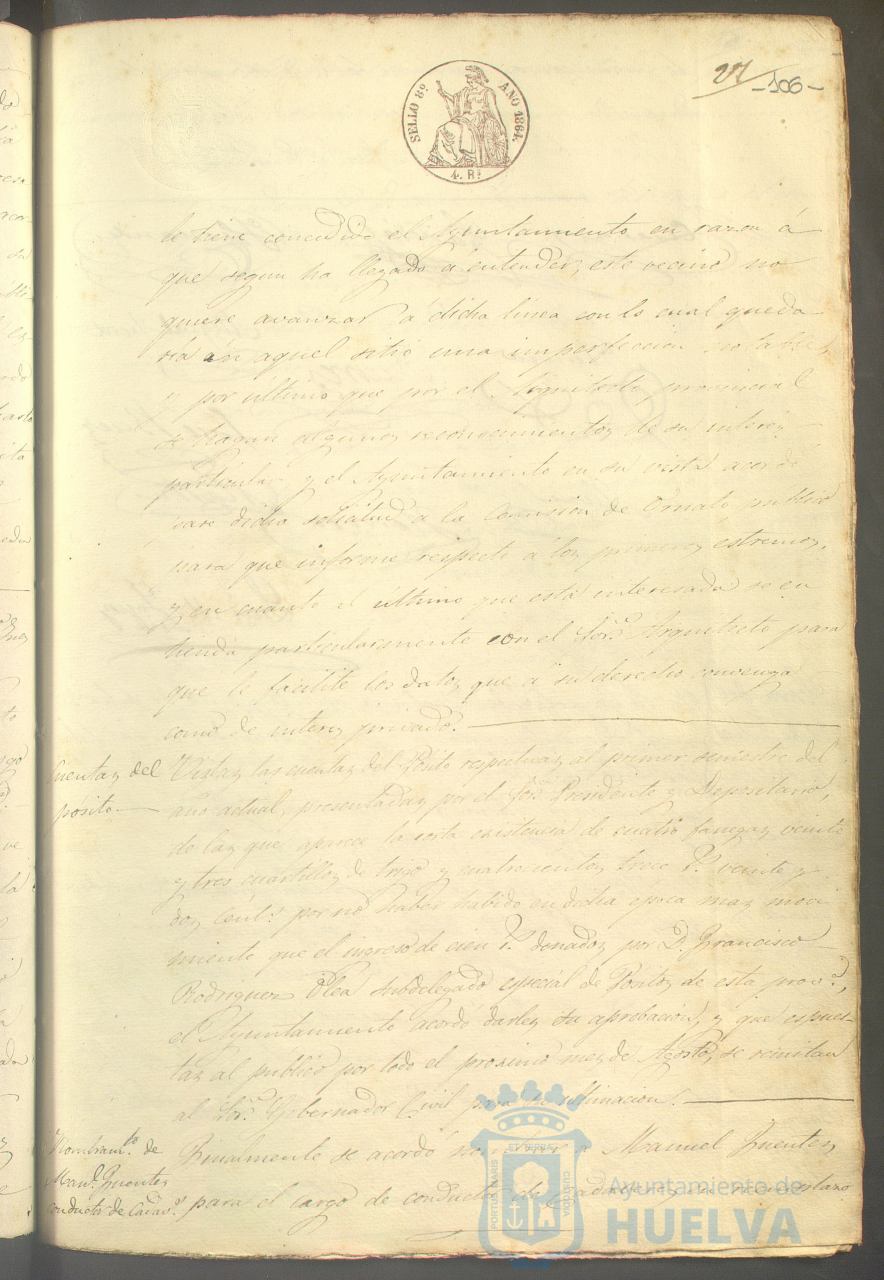 SELLO 8º AÑO 1864.
4. Rs
27
-106-
le tiene concedido el Ayuntamiento en razon á
que segun ha llegado á entender, este vecino no
quiere avanzar á dicha línea con lo cual queda
ria en aquel sitio una imperfeccion notable,
y por último que por el Arquitecto provincial
se hagan algunos reconocimientos de su interes
particular y el Ayuntamiento en su vista acordó
pase dicha solicitud á la Comision de Ornato publico
para que informe respecto á los primeros estremos,
y en cuanto al último que está interesada se en
tienda particularmente con el Sor. Arquitecto para
que le facilite los datos que á su derecho convenga
como de interes privado.
Cuentas del
posito
Vistas las cuentas del Pósito respectivas al primer semestre del
año actual, presentadas por el Sor. Presidente y Depositario,
de las que aparece la corta existencia de cuatro fanegas veinte
y tres cuartillos de trigo y cuatrocientos trece rs. veinte y
dos cents. por no haber habido en dicha epoca mas movi
miento que el ingreso de cien rs. donados por D. Francisco
Rodriguez Olea subdelegado especial de Positos de esta prova.,
el Ayuntamiento acordó darles su aprobacion, y que espues-
tas al publico por todo el procsimo mes de Agosto, se remitan
al Sor. Gobernador Civil para su ultimacion.
Nombramto. de
Manl. Fuentes
conductor de Cadavs.
Finalmente se acordó nombrar a Manuel Fuentes,
para el cargo de conductor de Cadaveres en reemplazo
PORTUS MARIS ET TERRAE CUSTODIA
Ayuntamiento de
HUELVA